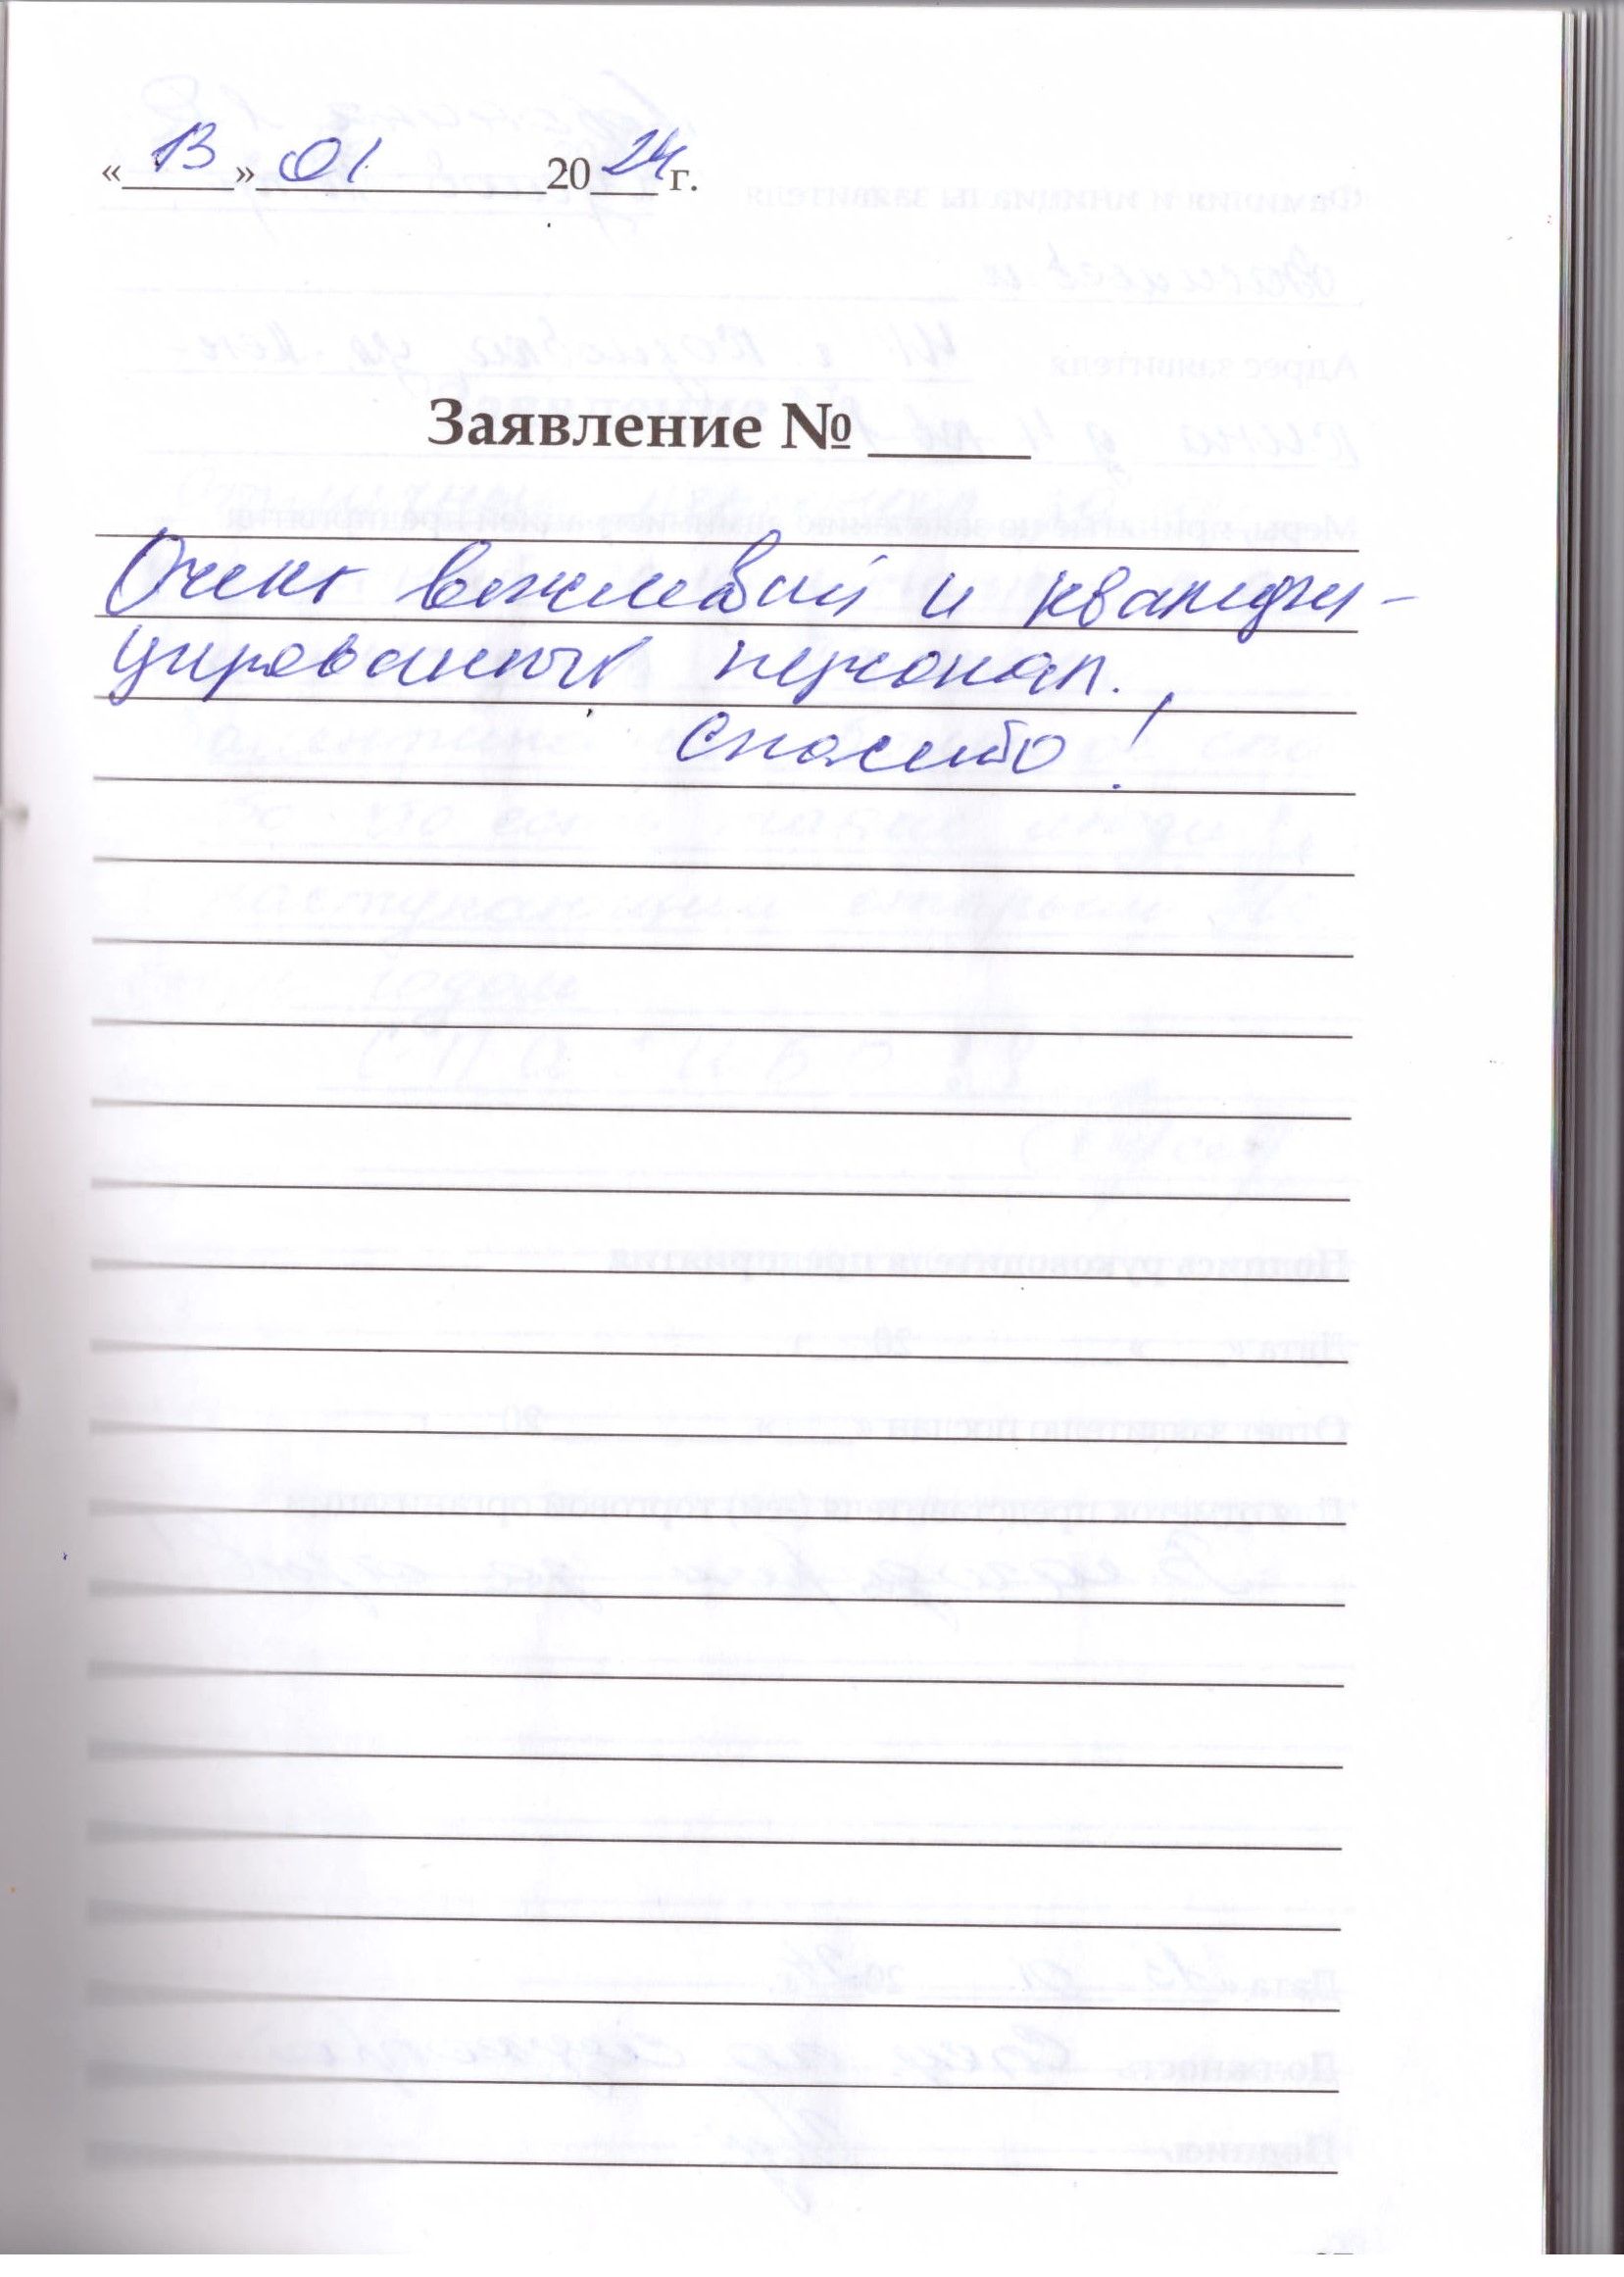 «13» 01 2024 г.
Заявление № ______
Очень вежливый и квалифи-
цированный персонал.
Спасибо!